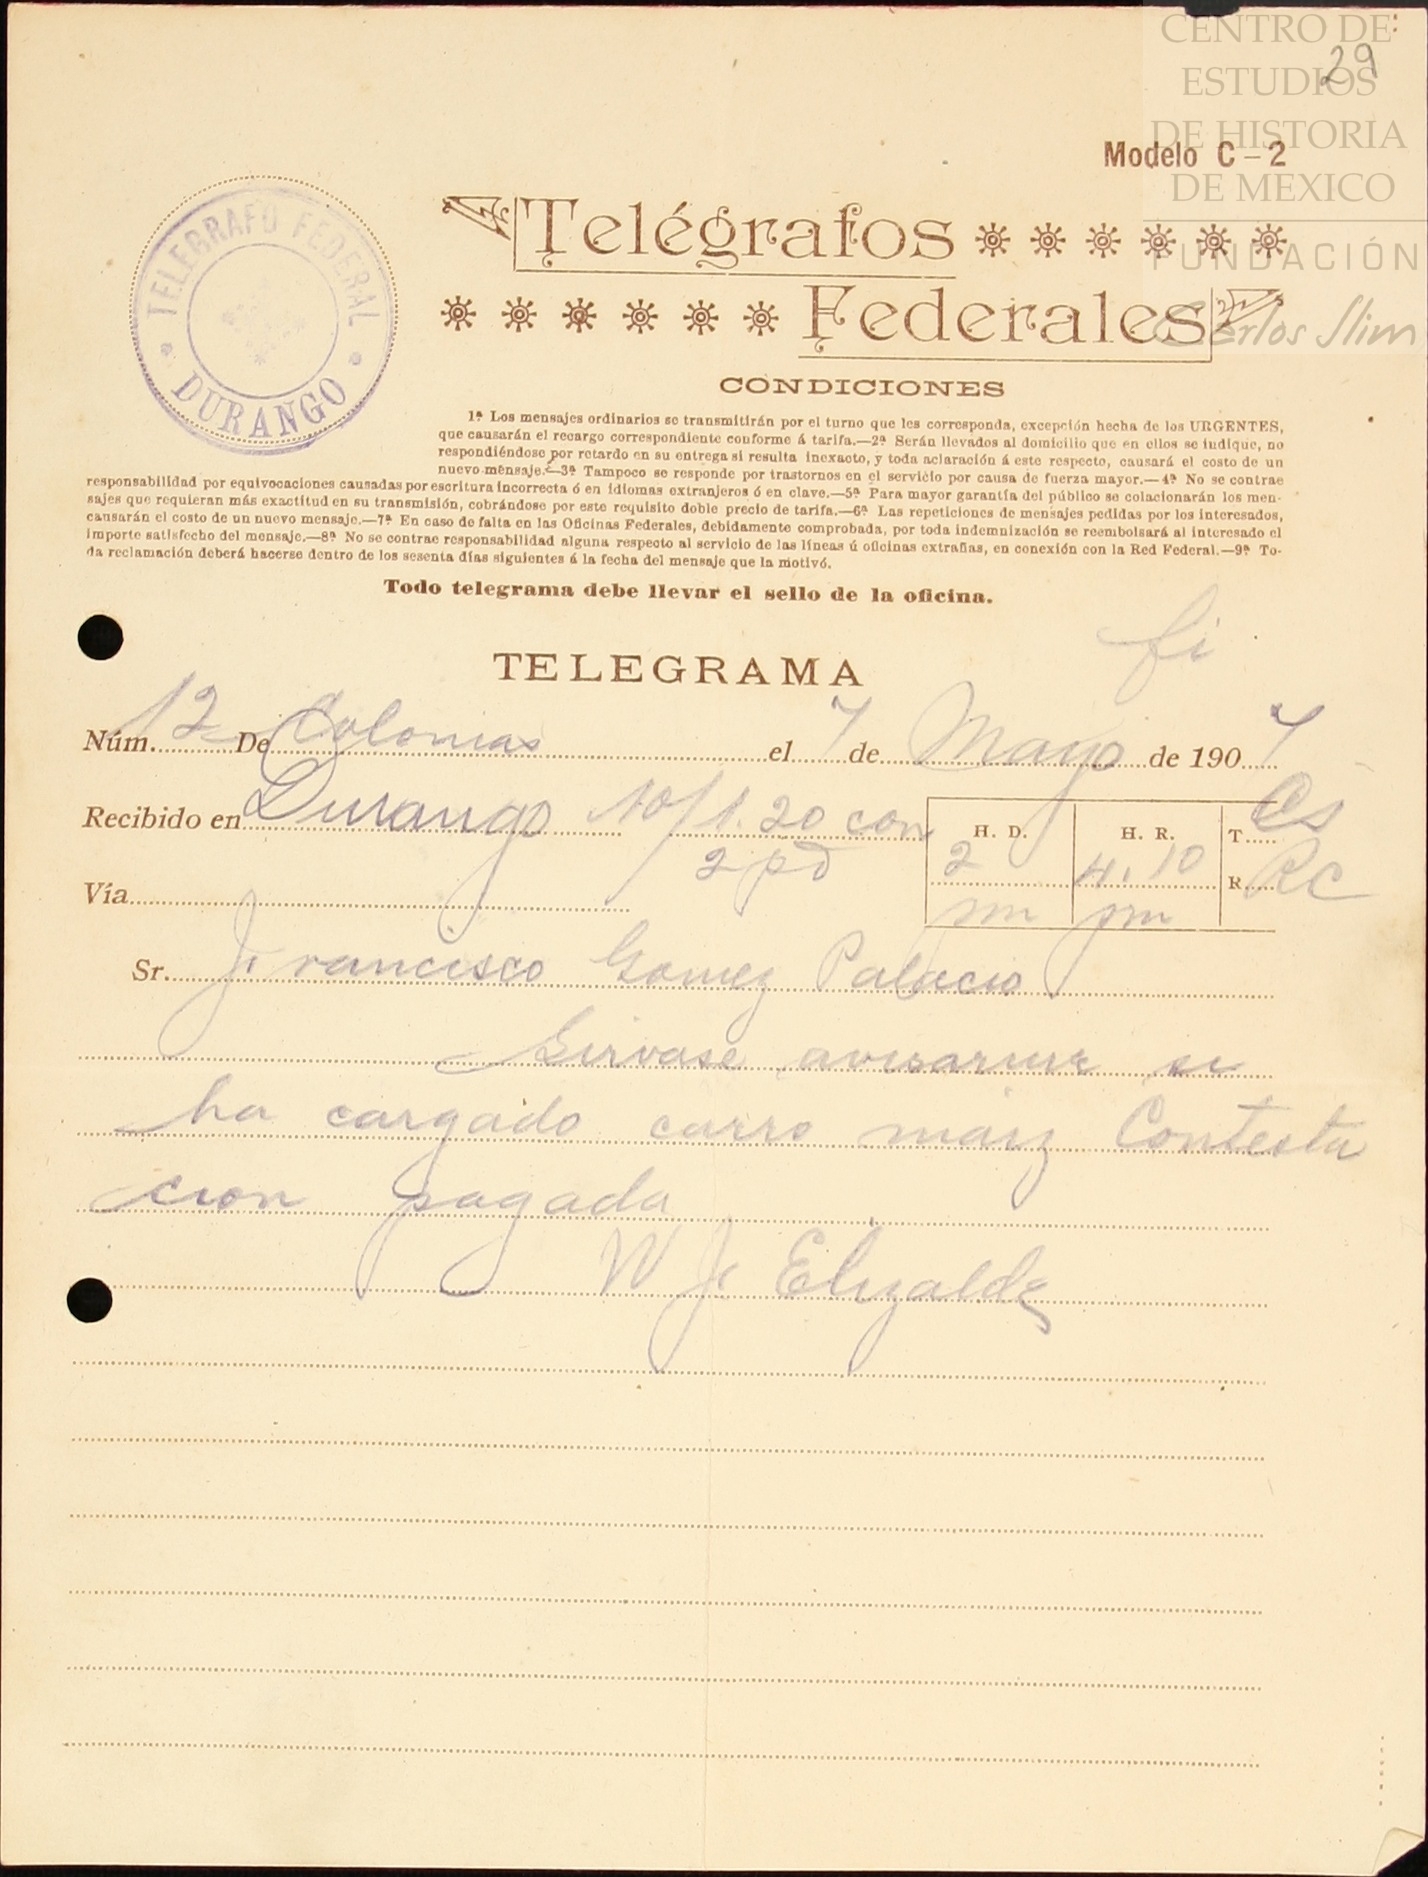 CENTRO DE
ESTUDIOS
DE HISTORIA
DE MEXICO
FUNDACIÓN
Carlos Slim
29
Modelo C-2
TELEGRAFO FEDERAL
DURANGO
Telégrafos
Federales
CONDICIONES
1ª Los mensajes ordinarios se transmitirán por el turno que les corresponda, excepción hecha de los URGENTES,
que causarán el recargo correspondiente conforme á tarifa.—2ª Serán llevados al domicilio que en ellos se indique, no
respondiéndose por retardo en su entrega si resulta inexacto, y toda aclaración á este respecto, causará el costo de un
nuevo mensaje.—3ª Tampoco se responde por trastornos en el servicio por causa de fuerza mayor.—4ª No se contrae
responsabilidad por equivocaciones causadas por escritura incorrecta ó en idiomas extranjeros ó en clave.—5ª Para mayor garantía del público se colacionarán los men-
sajes que requieran más exactitud en su transmisión, cobrándose por este requisito doble precio de tarifa.—6ª Las repeticiones de mensajes pedidas por los interesados,
causarán el costo de un nuevo mensaje.—7ª En caso de falta en las Oficinas Federales, debidamente comprobada, por toda indemnización se reembolsará al interesado el
importe satisfecho del mensaje.—8ª No se contrae responsabilidad alguna respecto al servicio de las líneas ú oficinas extrañas, en conexión con la Red Federal.—9ª To-
da reclamación deberá hacerse dentro de los sesenta días siguientes á la fecha del mensaje que la motivó.
Todo telegrama debe llevar el sello de la oficina.
TELEGRAMA
Núm. 12 De Colonias el 7 de Mayo de 1907
Recibido en Durango 10/1.20 con
2 pd
H. D. H. R. T. Cs
2 4.10 R. RC
pm pm
Vía
Sr. Francisco Gomez Palacio
Sirvase avisarme si
ha cargado carro maiz Contesta
cion pagada
W F Elizalde